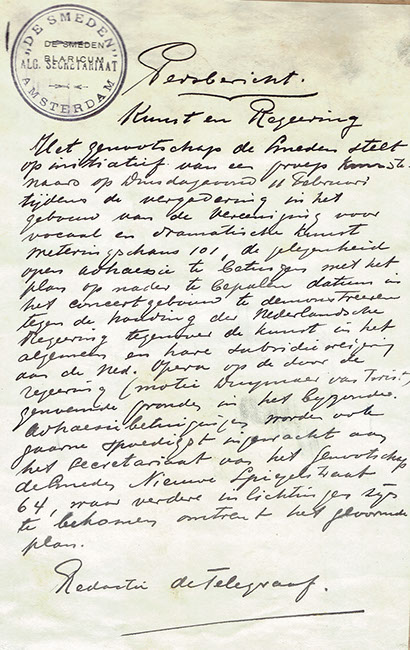 "DE SMEDEN"
DE SMEDEN
BLARICUM
ALG. SECRETARIAAT
AMSTERDAM
Persbericht.
Kunst en Regeering
Het genootschap de Smeden stelt
op initiatief van een groep kunste-
naars op Dinsdagavond 11 Februari
tijdens de vergadering in het
gebouw van de Vereeniging voor
vocaal en dramatische Kunst
101, de gelegenheid
open adhaesie te betuigen met het
plan op nader te bepalen datum in
het concertgebouw te demonstreeren
tegen de houding der Nederlandsche
Regeering tegenover de kunst in het
algemeen en hare subsidieweigering
aan de Ned. Opera op de door de
regeering (motie Duymaer van Twist)
genoemde gronden in het byzonder.
Adhaesiebetuigingen worden ook
gaarne spoedigst ingewacht aan
het secretariaat van het genootschap
de Smeden Nieuwe Spiegelstraat
64, waar verdere inlichtingen zijn
te bekomen omtrent het gevormde
plan.
Redactie de Telegraaf.